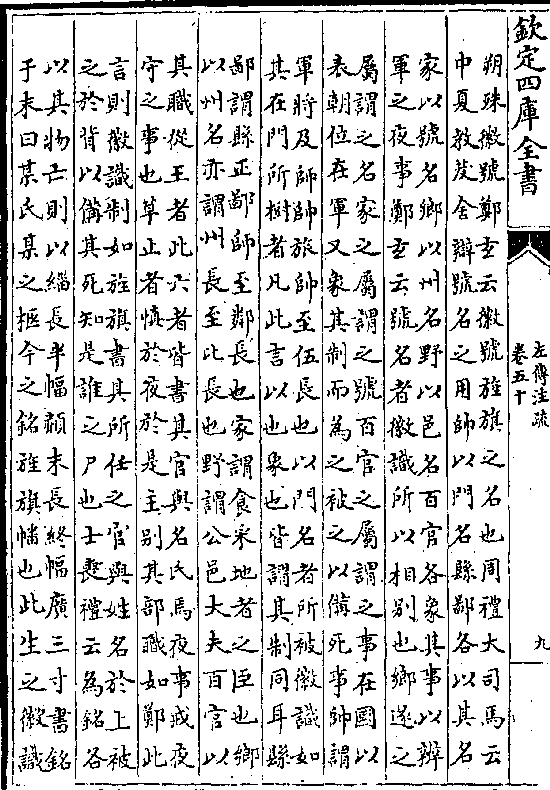 欽定四庫全書
左傳注疏
卷五十
九
朔殊徽號鄭玄云徽號旌旗之名也周禮大司馬云
中夏教茇舍辯號名之用帥以門名縣鄙各以其名
家以號名鄉以州名野以邑名百官各象其事以辨
軍之夜事鄭玄云號名者徽識所以相別也鄉遂之
屬謂之名家之屬謂之號百官之屬謂之事在國以
表朝位在軍又象其制而為之被之以備死事帥謂
軍將及師帥旅帥至伍長也以門名者所被徽識如
其在門所樹者凡此言以也象也皆謂其制同耳縣
鄙謂縣正鄙師至鄰長也家謂食采地者之臣也鄉
以州名亦謂州長至比長也野謂公邑大夫百官以
其職從王者此六者皆書其官與名氏焉夜事戒夜
守之事也草止者慎於夜於是主別其部職如鄭此
言則徽識制如旌旗書其所任之官與姓名於上被
之於背以備其死知是誰之尸也士喪禮云為銘各
以其物亡則以緇長半幅赬末長終幅廣三寸書銘
于末曰某氏某之柩今之銘旌旗幡也此生之徽識